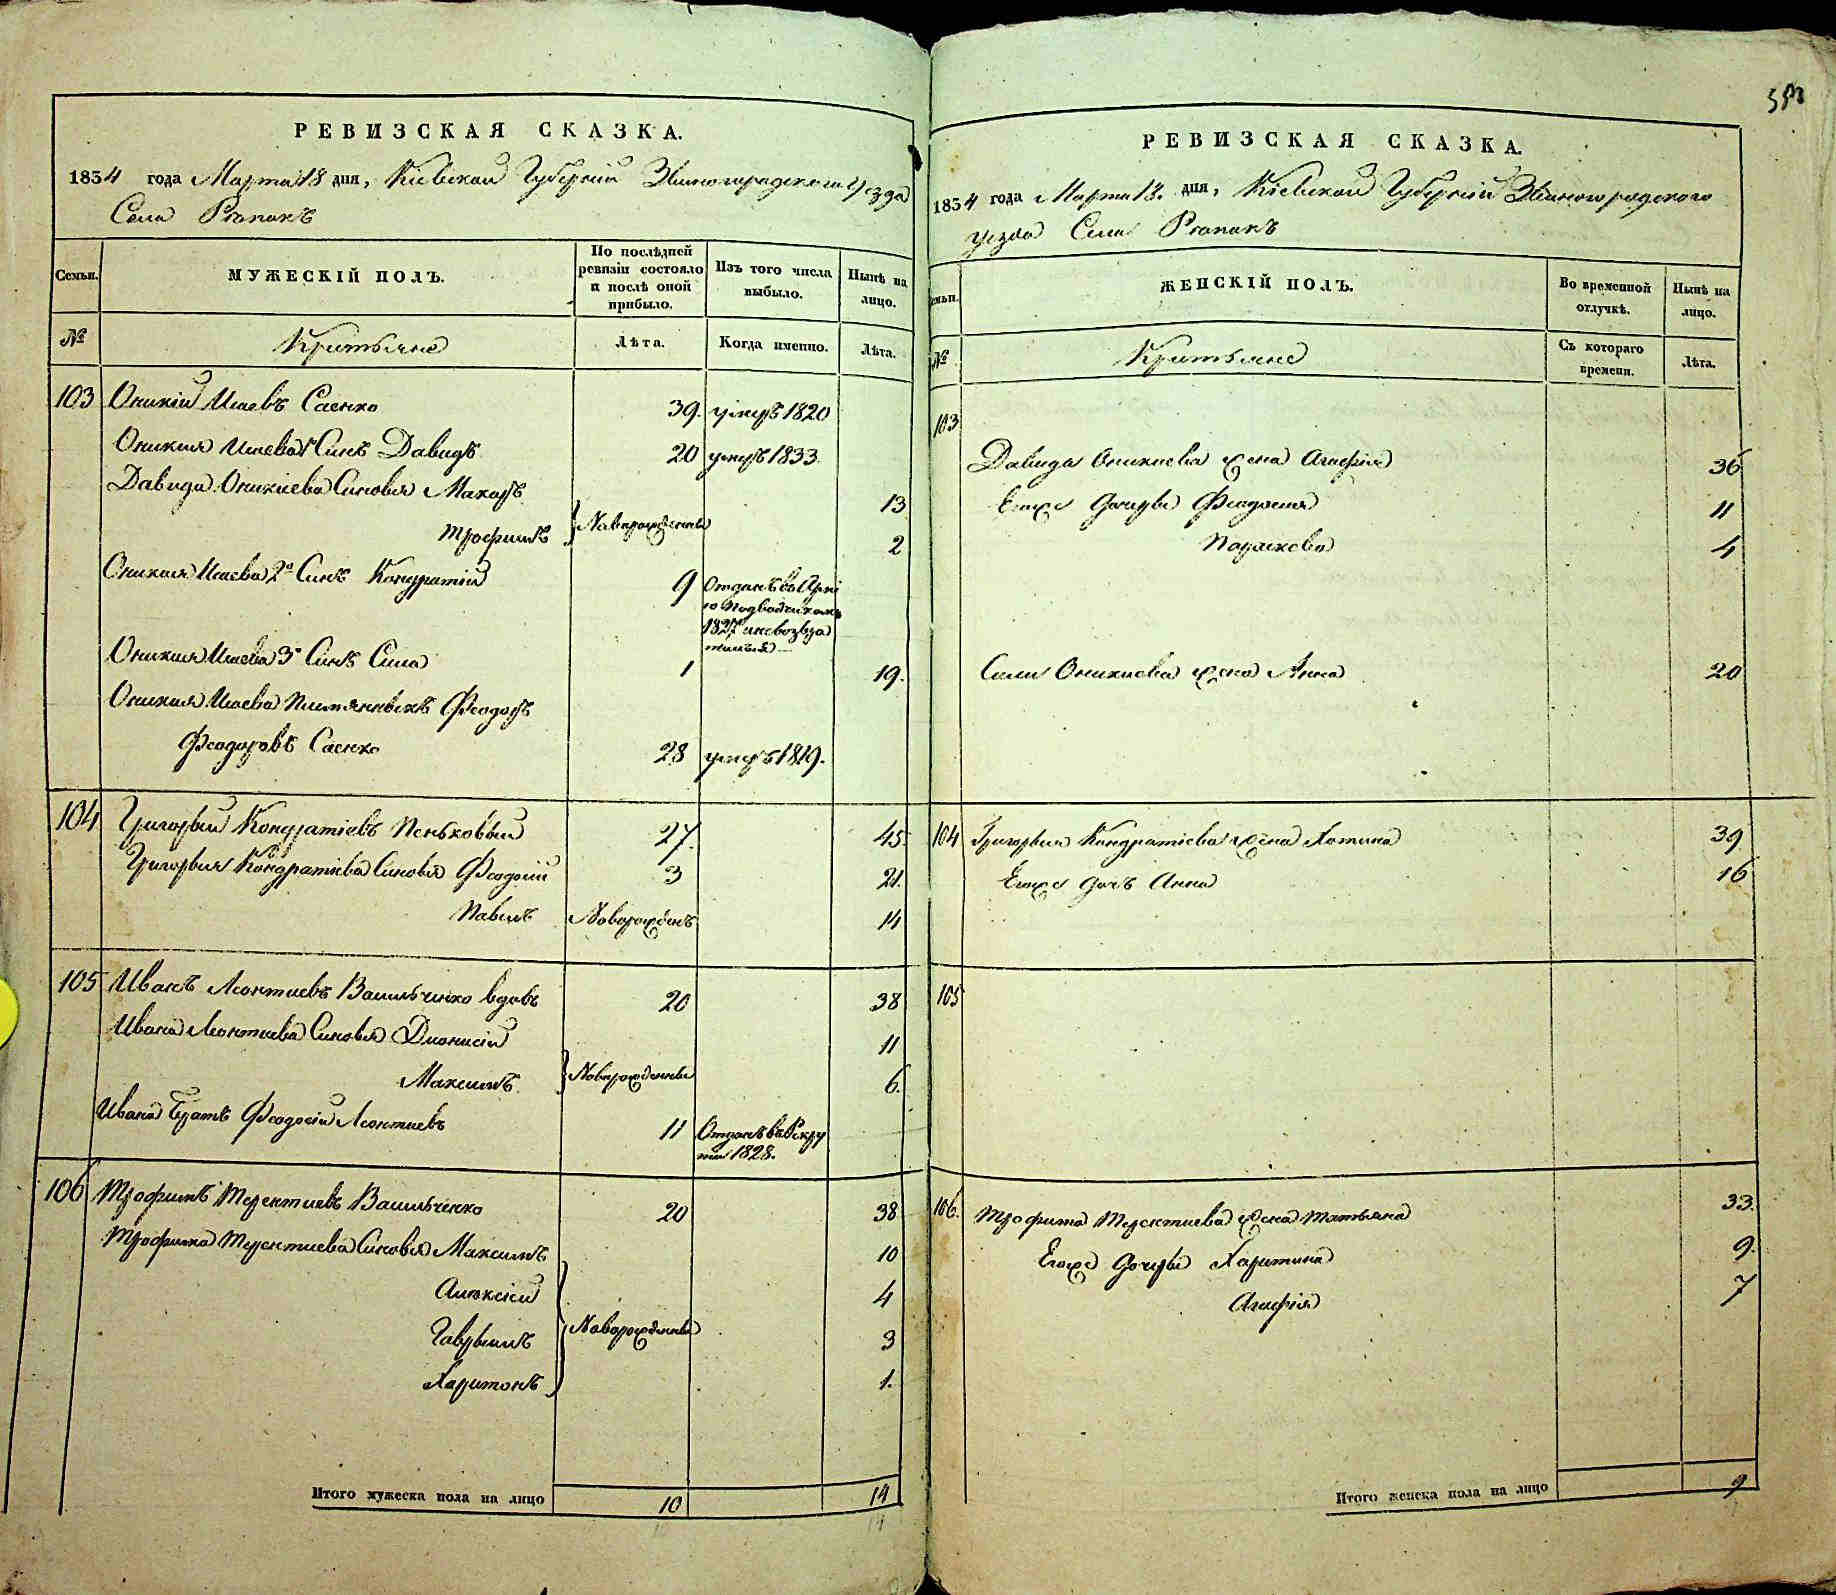 РЕВИЗСКАЯ СКАЗКА.
1834 года Марта 13 дня, Кіевской Губерніи Звиногородского Уезда
Села Рѣпокъ
Семьи.
МУЖЕСКІЙ ПОЛЪ.
По послѣдней ревизіи состояло и послѣ оной прибыло.
Изъ того числа выбыло.
Нынѣ на лицо.
№
Крестьяне
Лѣта.
Когда именно.
Лѣта.
103 Оникій Исаевъ Саенко 39. умеръ 1820
Оникия Исаева 1й Синъ Давидъ 20 умеръ 1833.
Давида Оникиева Синовья Макаръ 13
Трофимъ Новорожденны 2
Оникия Исаева 2й Синъ Кондратій 9 Отданъ въ Армі
ю Подводчикомъ
1827 и невозвра
тился
Оникия Исаева 3й Синъ Сила 1 19.
Оникия Исаева Племянникъ Феодоръ
Феодоровъ Саенко 28 умеръ 1819.
104 Григорый Кондратіевъ Пеньковый 27. 45.
Григорыя Кондратіева Синовья Феодосій 3 21.
Павелъ Новорожденъ 14
105 Иванъ Леонтиевъ Васильченко вдовъ 20 38
Ивана Леонтиева Синовья Дионисій 11
Максимъ Новорожденны 6.
Ивана Братъ Феодосій Леонтиевъ 11 Отданъ въ Рекру
ты 1828.
106 Трофимъ Терентиевъ Васильченко 20 38
Трофима Терентиева Синовья Максимъ 10
Алексѣй 4
Гаврыилъ Новорожденны 3
Харитонъ 1.
Итого мужеска пола на лицо 10 14
РЕВИЗСКАЯ СКАЗКА.
1834 года Марта 13. дня, Кіевской Губерніи Звиногородского
уезда Села Рѣпокъ
Семьи.
ЖЕНСКІЙ ПОЛЪ.
Во временной отлучкѣ.
Нынѣ на лицо.
№
Крестьяне
Съ котораго времени.
Лѣта.
103
Давида Оникиева жена Агафія 36
Егоже дочеры Феодосия 11
Параскева 4
Силы Оникиева жена Анна 20
104 Григорыя Кондратіева жена Хотина 39
Егоже дочъ Анна 16
105
106. Трофима Терентиева жена Татьяна 33.
Егоже дочеры Харитина 9.
Агафія 7
Итого женска пола на лицо 9